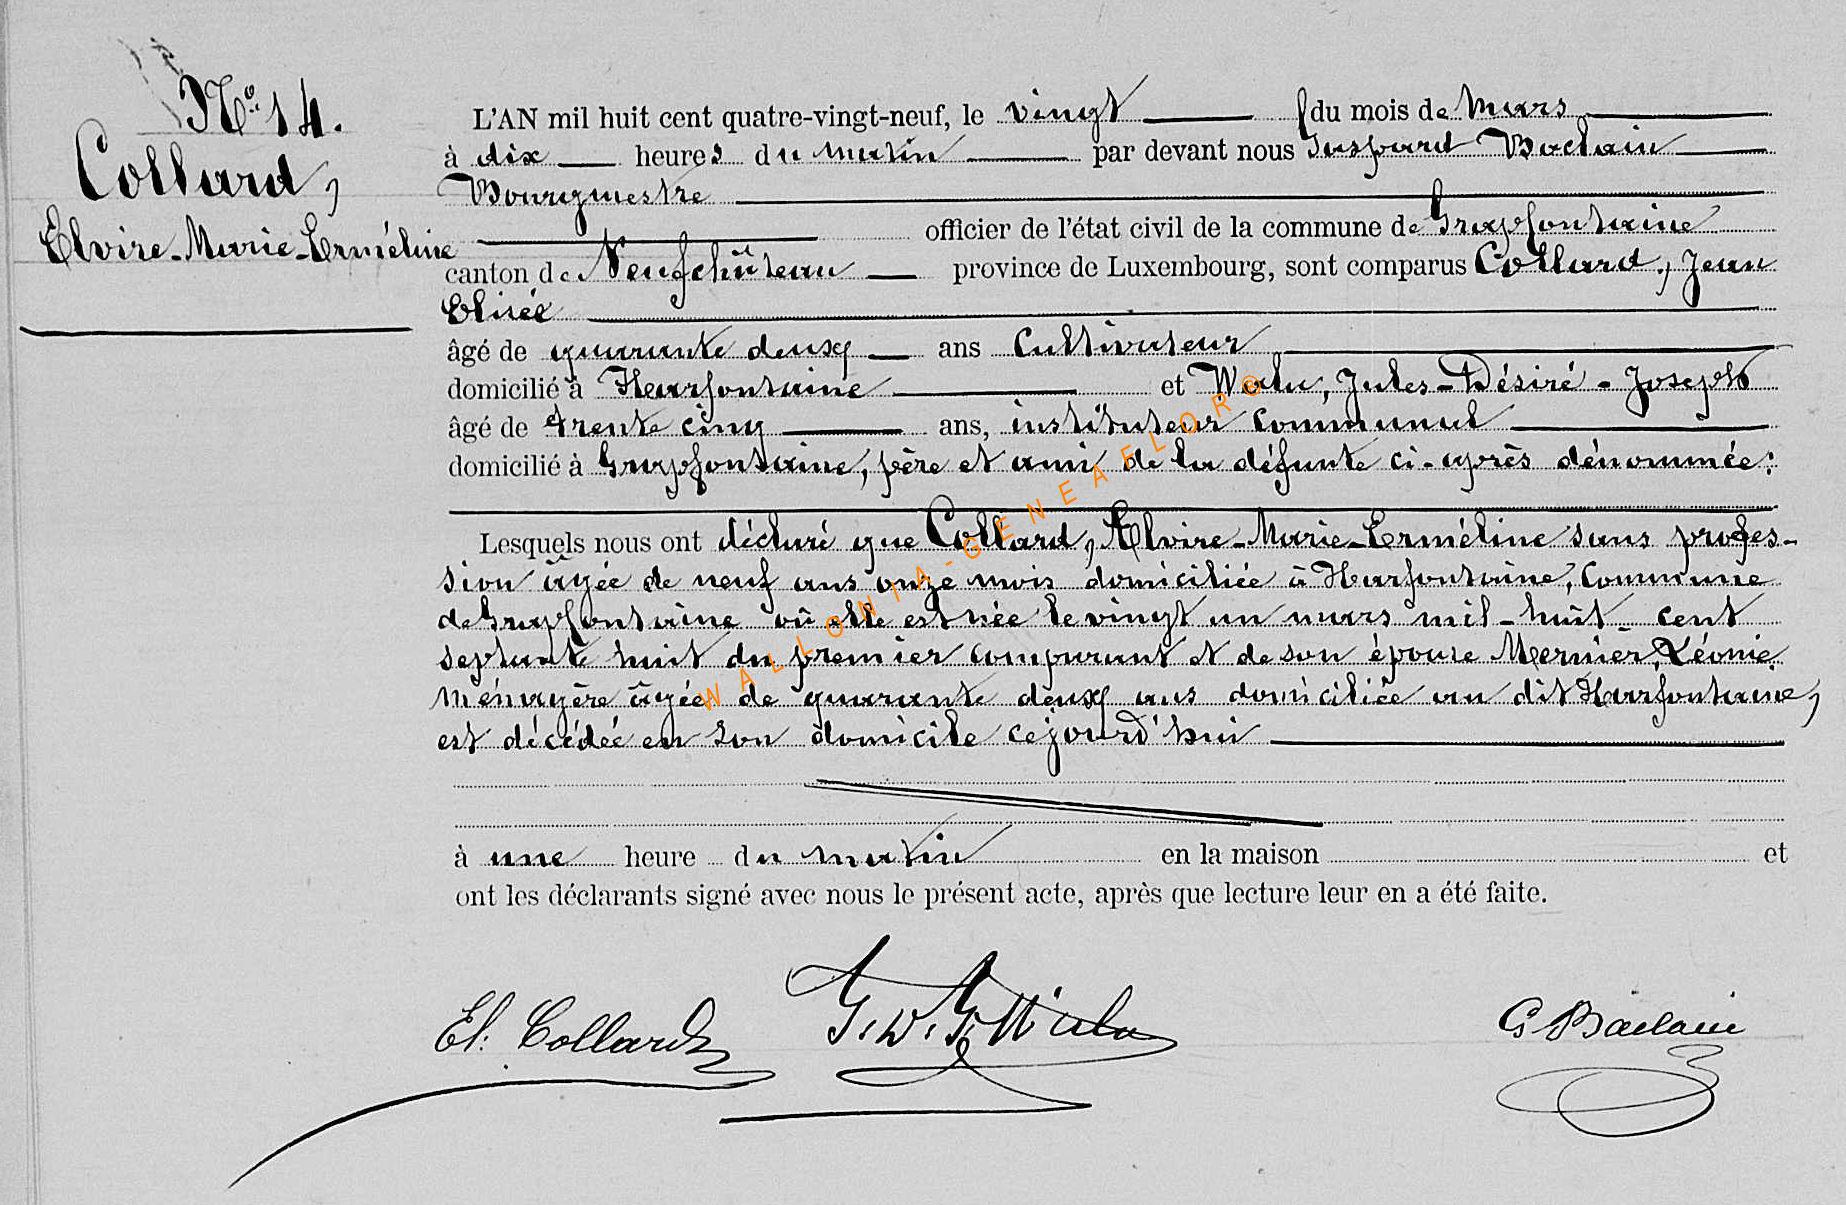 N° 14.
Collard,
Elvire-Marie-Erméline
L'AN mil huit cent quatre-vingt-neuf, le vingt du mois de Mars
à dix heures du matin par devant nous Gaspard Baclain
Bourgmestre
officier de l'état civil de la commune de Grapfontaine
canton de Neufchâteau province de Luxembourg, sont comparus Collard, Jean
Elisée
âgé de quarante deux ans Cultivateur
domicilié à Harfontaine et Walu, Jules-Désiré-Joseph
âgé de trente cinq ans, instituteur communal
domicilié à Grapfontaine, père et ami de la défunte ci-après dénommée:
Lesquels nous ont déclaré que Collard, Elvire-Marie-Erméline sans profes-
sion âgée de neuf ans onze mois domiciliée à Harfontaine, Commune
de Grapfontaine où elle est née le vingt un mars mil-huit-cent
septante huit du premier comparant et de son épouse Mernier, Léonie
ménagère âgée de quarante deux ans domiciliée au dit Harfontaine,
est décédée en son domicile cejourd'hui
à une heure du matin en la maison et
ont les déclarants signé avec nous le présent acte, après que lecture leur en a été faite.
El. Collard J. D. J. Walu G Baclain
WALLONIA-GENEAFLOR©